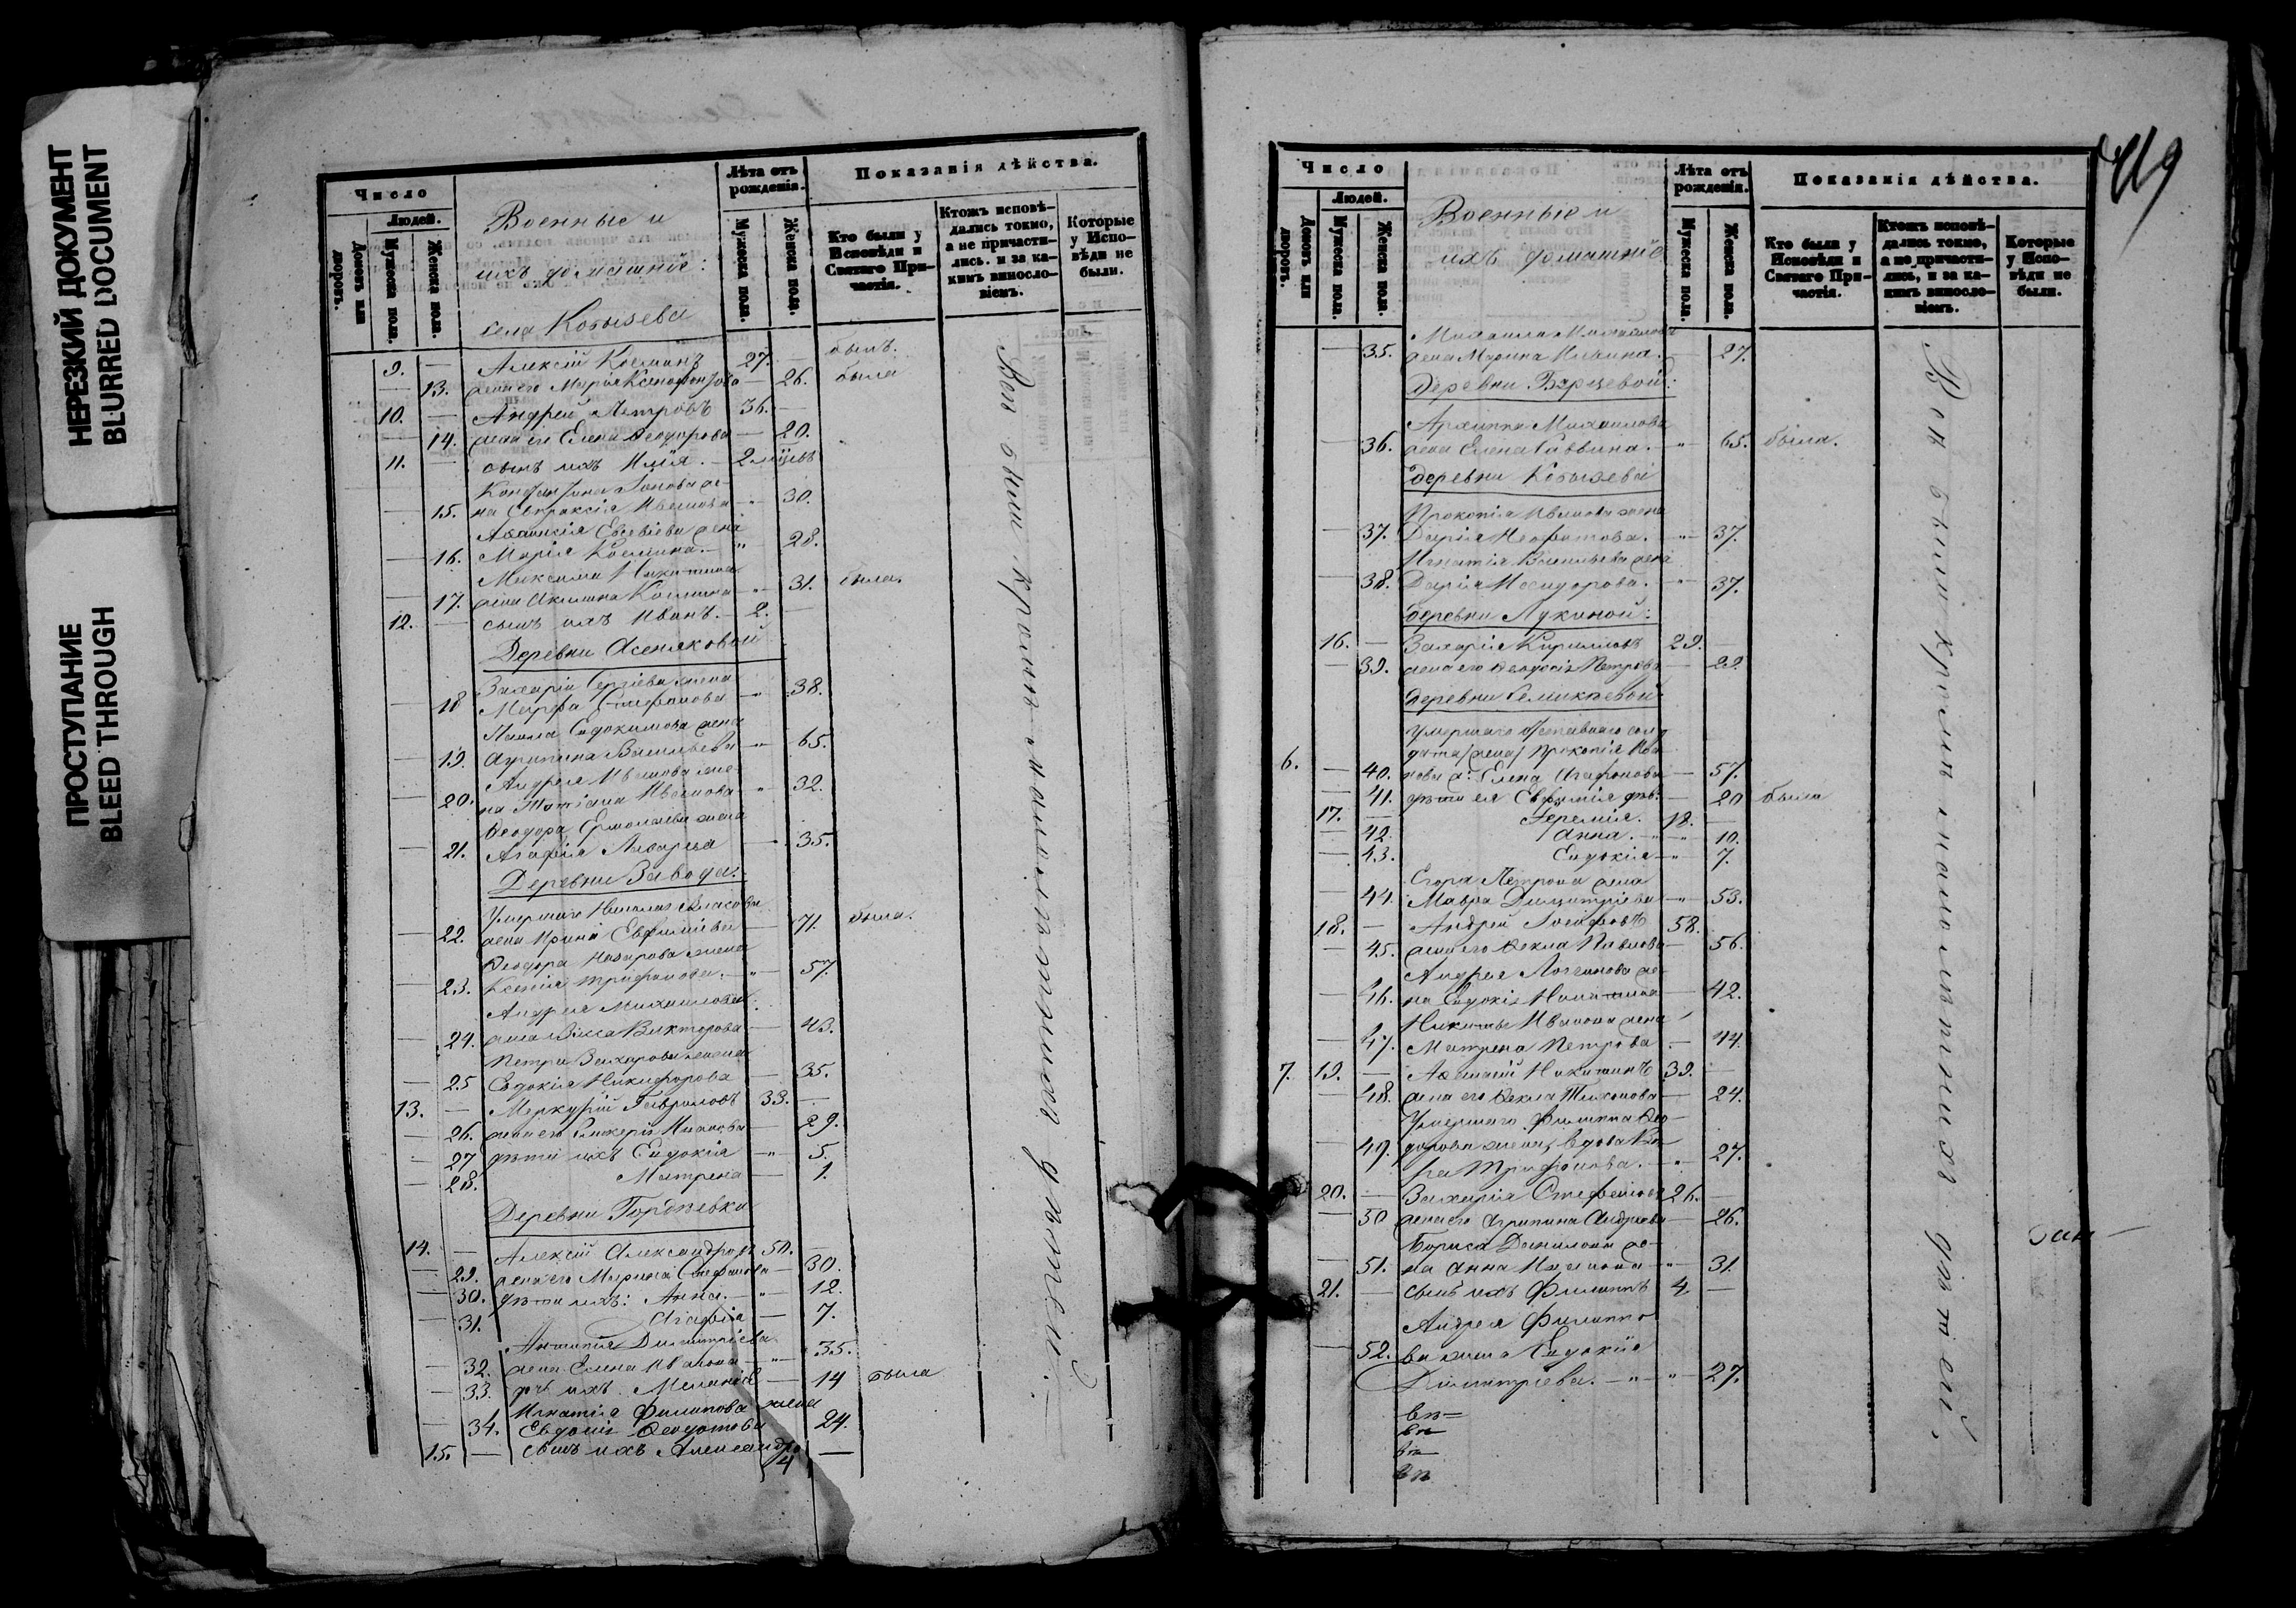 НЕРЕЗКИЙ ДОКУМЕНТ
BLURRED DOCUMENT
ПРОСТУПАНИЕ
BLEED THROUGH
Число
Людей.
Домовъ или дворовъ.
Мужеска полу.
Женска полу.
Военные и
ихъ домашніе:
села Кобызева
Лѣта отъ рожденія.
Мужеска полу.
Женска полу.
Показанія дѣйства.
Кто были у Исповѣди и Святаго Причастія.
Ктожъ исповѣдались токмо, а не причастились. и за какимъ винословіемъ.
Которые у Исповѣди не были.
9. — Алексій Косминъ 27. — былъ.
— 13. жена его Марія Ксенофонтова — 26. была
10. — Андрей Петровъ 36. —
— 14. жена его Елена Ѳеодорова — 20.
11. — сынъ ихъ Илія. — 2
15. на Евпраксія Иванова — 30.
Аѳанасія Евсевіева жена
— 16. Марія Космина. — " 28.
Максима Никитина
— 17. жена Акилина Космина — " 31. была.
12. — сынъ ихъ Иванъ. — 2. —
Деревни Асеняковой
Захарія Сергіева жена
— 18 Марфа Стефанова — " 38.
Павла Евдокимова жена
— 19. Агрипина Васильева — " 65.
Андрея Иванова же-
— 20. на Татіана Иванова — " 32.
Ѳеодора Ермолаева жена
— 21. Агафія — 35.
Деревни Завода:
Умершаго Николая Власова
— 22. жена Ирина Евфиміева — 71. была.
Ѳеодора Назарова жена
— 23. Ксенія Трифонова. — " 57.
Андрея Михаилова
— 24. жена Васса Викторова — 43.
Петра Захарова жена
— 25 Евдокія Никифорова — 35.
13. — Меркурій Гавриловъ 33. —
— 26. жена его Гликерія Иванова — 29.
— 27 дѣти ихъ Евдокія — " 5.
— 28. Матрена — 1.
Деревни Гордѣевки
14. — Алексій Александровъ 50.
— 29. жена его Марина Стефанова — 30.
— 30. дѣти ихъ: Анна. — " 12.
— 31. Агафія — 7.
Антипія Димитріева
— 32. жена Елена Иванова — " 35.
— 33. дчь ихъ Меланія — 14 была
Игнатія Филипова жена
— 34. Евдокія Ѳедотова 24.
15. — сынъ ихъ Александръ 4 —
Вси были кромѣ малолѣтнихъ дѣтей
Число
Людей.
Домовъ или дворовъ.
Мужеска полу.
Женска полу.
Военные и
ихъ домашніе
Лѣта отъ рожденія.
Мужеска полу.
Женска полу.
Показанія дѣйства.
Кто были у Исповѣди и Святаго Причастія.
Ктожъ исповѣдались токмо, а не причастились, и за какимъ винословіемъ.
Которые у Исповѣди не были.
Михаила Михаилова
— 35. жена Марина Ильина. — 27.
Архиппа Михаилова
— 36. жена Елена Саввина. — " 65. была.
деревни Кобызева
Прокопія Иванова жена
— 37. Дарія Неофитова. — " 37.
Игнатія Васильева жена
— 38. Дарія Исидорова. — " 37.
деревни Лукиной:
16. — Захарія Кирилловъ 29. —
— 39. жена его Ѳеодосія Петрова — 22
деревни Семикаевой
Умершаго отставнаго сол-
дата жена Прокопія Ива-
6. — 40. нова Елена Агафонова — 57.
— 41. дѣти ея Евфимія дѣв: — 20 была
17. — Іеремія. 18. —
— 42. Анна. — " 10.
— 43. Евдокія — " 7.
Егора Петрова жена
— 44. Мавра Димитріева — " 53.
18. — Андрей Іосифовъ 58.
— 45. жена его Ѳекла Павлова — 56.
Андрея Логинова же-
— 46. на Евдокія Никитина — 42.
Никиты Иванова жена
— 47. Матрена Петрова — 44.
7. 19. — Аѳанасій Никитинъ 39. —
— 48. жена его Ѳекла Тихонова — 24.
Умершаго Филиппа Ѳео-
— 49. дорова жена, вдова
Трифонова. — " 27.
20. — Захарія Стефановъ 26. —
— 50 жена его Агрипина Андреева — 26.
Бориса Данилова же-
— 51. на Анна Иванова — " 31.
21. — сынъ ихъ Филиппъ 4. —
Андрея Филиппо
— 52. ва жена Евдокія
Димитріева. — " — " 27.
Вси были кромѣ малолѣтнихъ дѣтей.